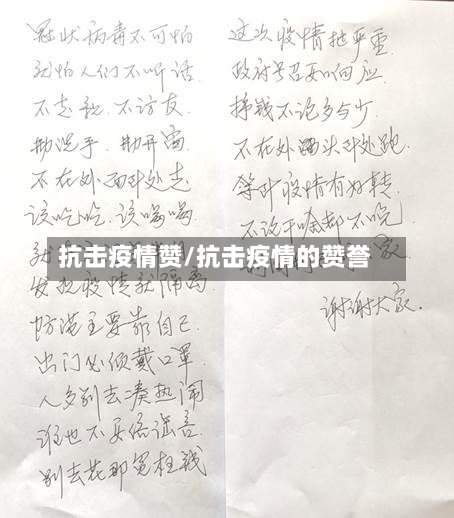 冠状病毒不可怕
就怕人们不听话
不走 不访友
勤洗手 勤开窗
不在外面到处走
该吃吃 该喝喝
就
发现疫情就隔离
防范主要靠自己
出门必须戴口罩
人多别去凑热闹
谁也不要信谣言
别去花那冤枉钱
这次疫情挺严重
政府号召要响应
挣钱不论多与少
不在外头到处跑
等到疫情有好转
不说干啥都不吃
家
谢谢大家.
抗击疫情赞/抗击疫情的赞誉